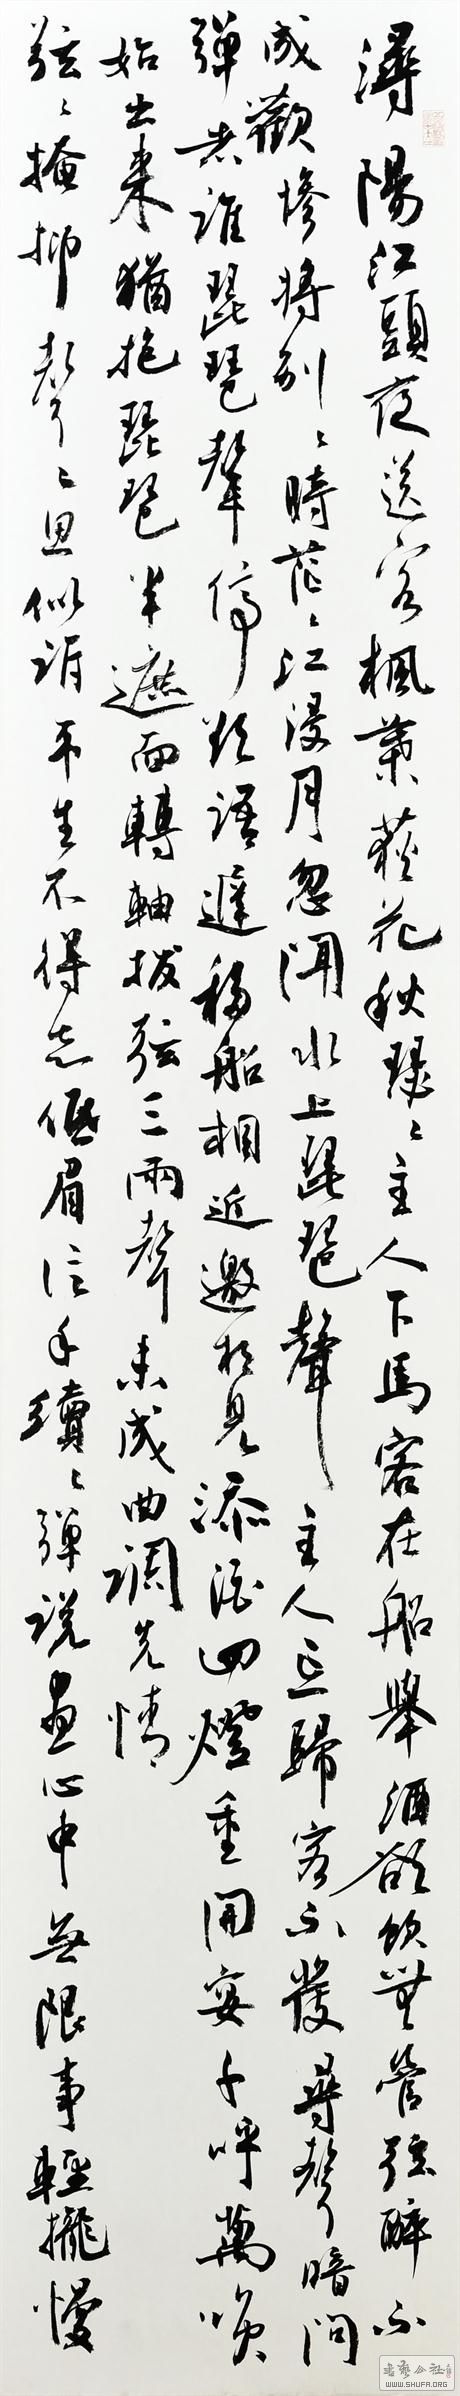 潯陽江頭夜送客楓葉荻花秋瑟〻主人下馬客在船舉酒欲飲無管弦醉不
成歡慘將別〻時茫〻江浸月忽聞水上琵琶聲主人忘歸客不發尋聲暗問
彈者誰琵琶聲停欲語遲移船相近邀相見添酒回燈重開宴千呼萬喚
始出來猶抱琵琶半遮面轉軸撥弦三兩聲未成曲調先情
弦〻掩抑聲〻思似訴平生不得志低眉信手續〻彈説盡心中無限事輕攏慢
書藝公社
WWW.SHUFA.ORG